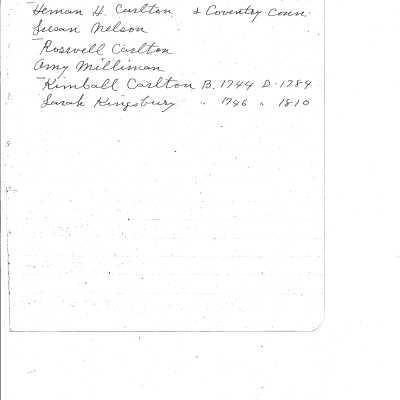 Heman H. Carlton & Coventry Conn.
Susan Nelson
Roswell Carlton
Amy Milliman
Kimball Carlton B. 1744 D. 1784
Sarah Kingsbury " 1746 " 1810